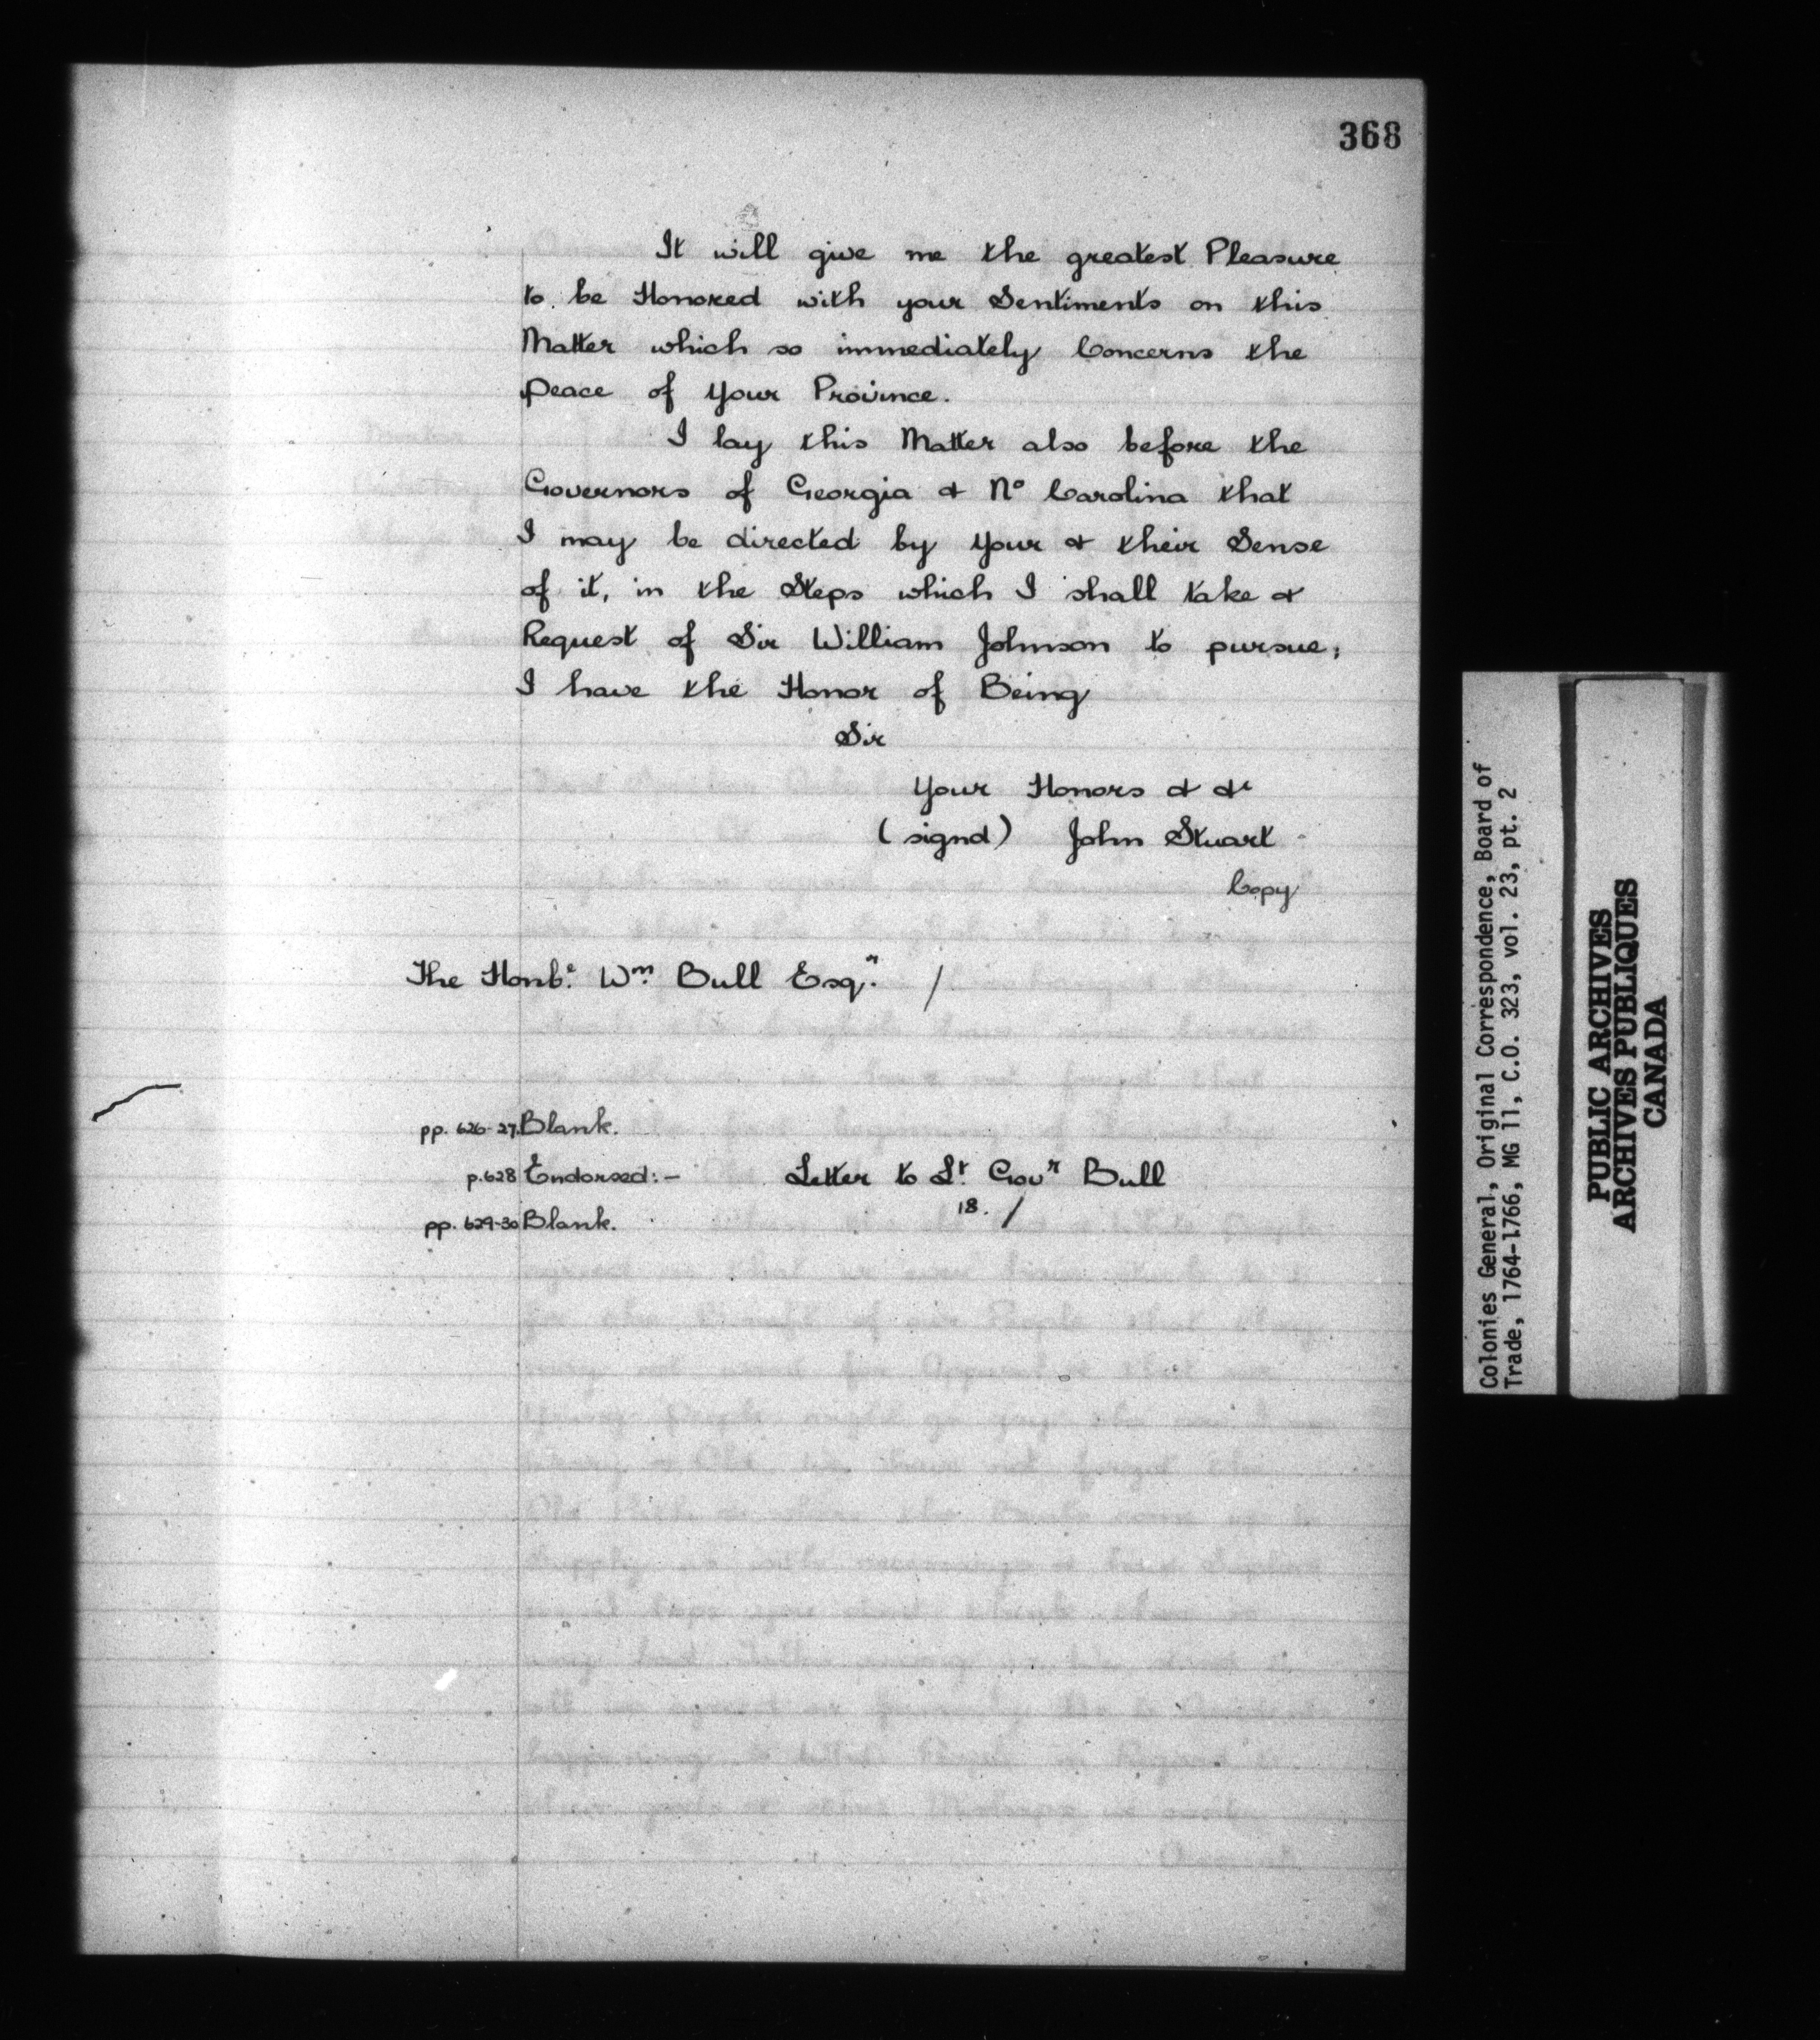 368
It will give me the greatest Pleasure
to be Honored with your Sentiments on this
Matter which so immediately Concerns the
peace of Your Province.
I lay this Matter also before the
Governors of Georgia & No Carolina that
I may be directed by Your & their Sense
of it, in the Steps which I shall take &
Request of Sir William Johnson to pursue,
I have the Honor of Being
Sir
Your Honors & &c
(signd) John Stuart
Copy
The Honble. Wm. Bull Esqr. /
pp. 626-27. Blank.
p. 628 Endorsed:- Letter to Lt. Govr Bull
18. /
pp. 629-30 Blank.
Colonies General, Original Correspondence, Board of
Trade, 1764-1766, MG 11, C.O. 323, vol. 23, pt. 2
PUBLIC ARCHIVES
ARCHIVES PUBLIQUES
CANADA